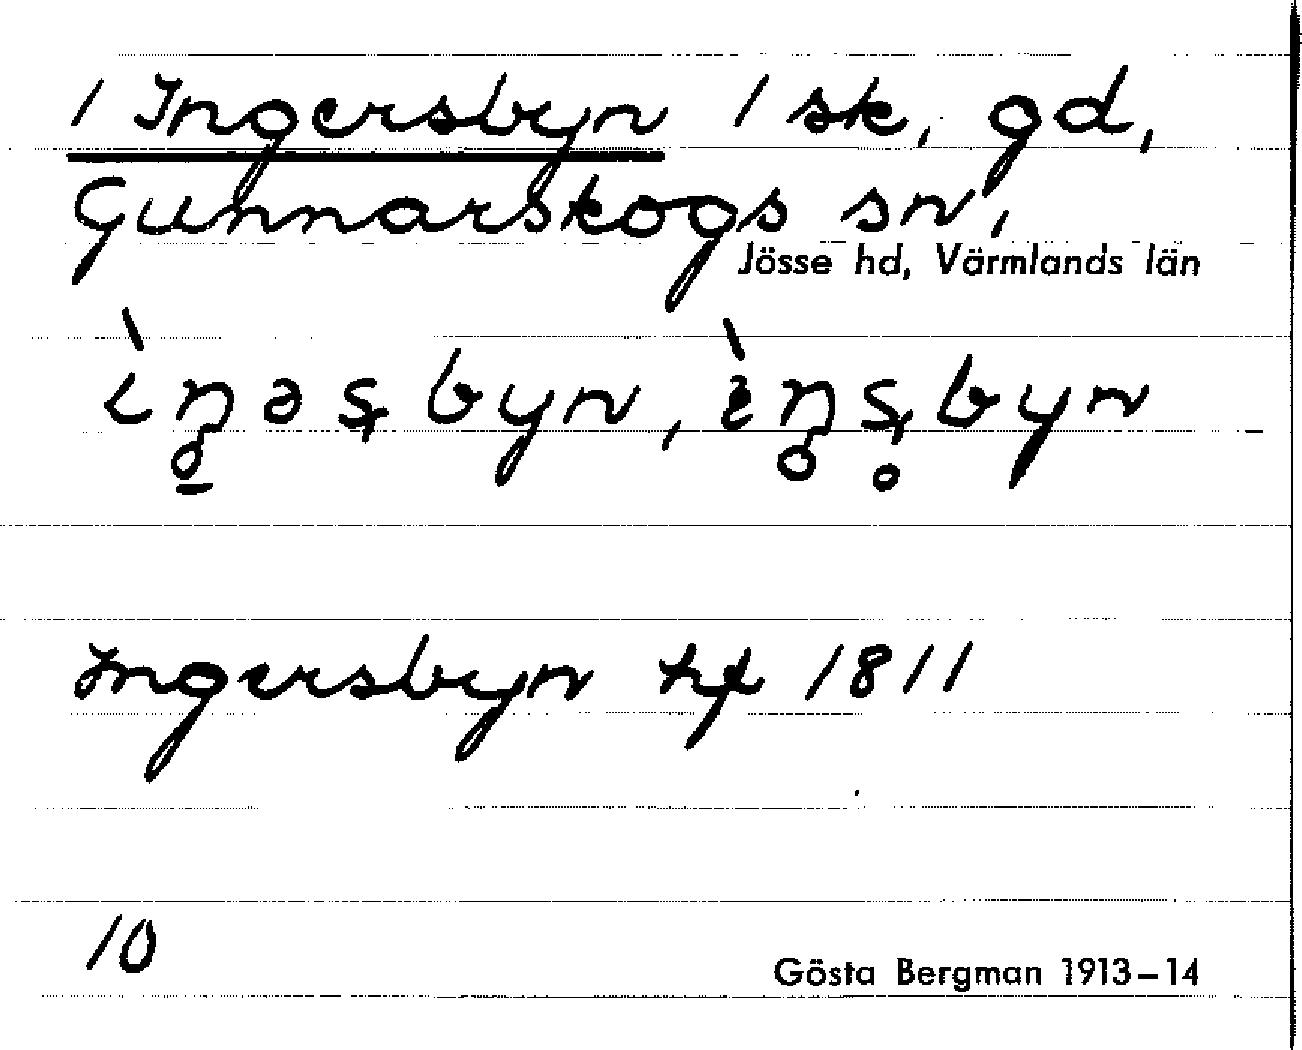 1 Ingersbyn 1 sk, gd,
Gunnarskogs sn,
Jösse hd, Värmlands län
ìŋəʂbyn, ìŋ̥ʂ̥byn
Ingersbyn hf 1811
10
Gösta Bergman 1913–14